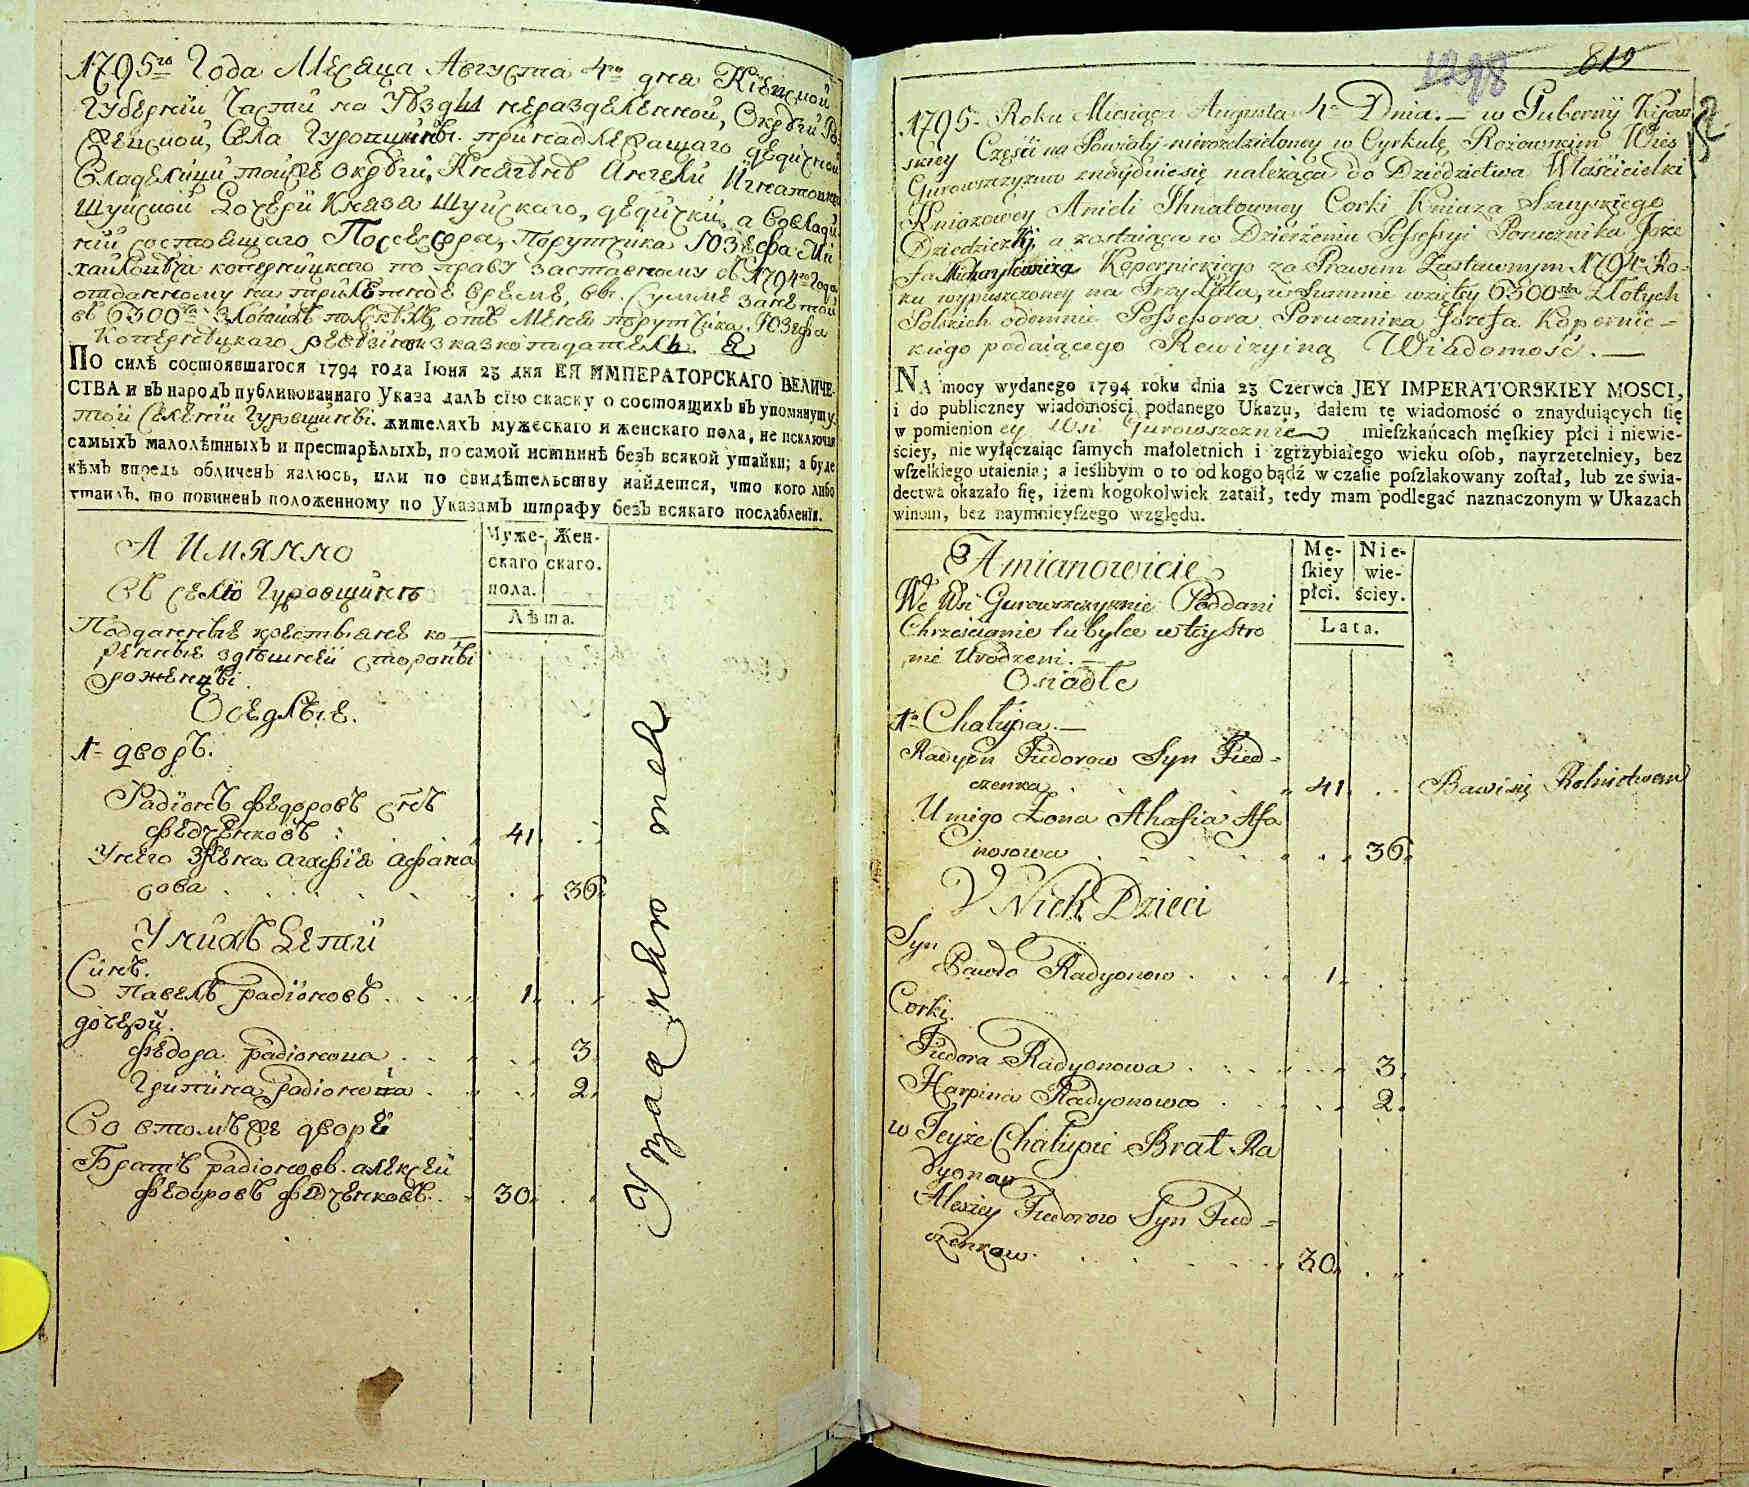 1795го Года Месяца Августа 4го дня Кіевской
Губерніи Части на Уѣзды нераздѣленной, Округи Ро
Села принадлежащаго дедичной
Владелици тойже округи, Княгинѣ Ангели Игнатовне
Шуйской Дочери Князя Шуйскаго, дедички, а во владе
ніи состоящаго Посессора, Порутчика Юзефа Ми
хайловича коперницкаго по праву заставному въ 1794го Года
отданному на время, въ Сумме занетой
въ 6300 Злотихъ отъ Меня порутчика Юзефа
Коперницкаго
ПО силѣ состоявшагося 1794 года Іюня 23 дня ЕЯ ИМПЕРАТОРСКАГО ВЕЛИЧЕ-
СТВА и въ народъ публикованнаго Указа далъ сію скаску о состоящихъ въ упомянуту
той Селеніи Гуровщинѣ. жителяхъ мужескаго и женскаго пола, не исключая
самыхъ малолѣтныхъ и престарѣлыхъ, по самой истиннѣ безъ всякой утайки; а буде
кѣмъ впредь обличенъ явлюсь, или по свидѣтельству найдется, что кого либо
утаилъ, то повиненъ положенному по Указамъ штрафу безъ всякаго послабленія.
А имянно
Муже-
скаго
пола.
Жен-
скаго.
Лѣта.
Въ селѣ Гуровщинѣ
Подданные крестьяне ко
ренные здѣшней стороны
роженцы
Оседлые.
1й дворъ.
Радіонъ федоровъ снъ
федченковъ . . . 41. . .
Унего Жена агафія афана
сова . . . 36.
Унихъ Дети
Синъ.
Павелъ радіоновъ . . . 1. . .
дочери.
федора радіонова . . . 3
Грипина радіонова . . . 2.
Во втомъже дворе
Братъ радіоновъ алексей
федоровъ федченковъ . . 30. . .
1298 819
1795. Roku Miesiąca Augusta 4o Dnia. — w Guberny Kijow
skiey Części na Powiaty nierozdzieloney w Cyrkule Rożowskim Wieś
Gurowszczyzna znayduiesię należąca do Dziedzictwa Właścicielki
Kniazowey Anieli Ihnatowney Corki Kniaza Szuyskiego
Dziedziczki, a zostaiąca w Dzierżeniu Possessyi Porucznika Józe
fa Michayłowicza Kopernickiego za Prawem Zastawnym 1794o Ro-
ku wypuszczoney na Trzy Lata, w Summie wziętey 6300 Złotych
Polskich odemnie Possessora Porucznika Józefa Kopernic-
kiego podaiącego Rewizyiną Wiadomość. —
NA mocy wydanego 1794 roku dnia 23 Czerwca JEY IMPERATORSKIEY MOSCI,
i do publiczney wiadomości podanego Ukazu, dałem tę wiadomość o znayduiących się
w pomienion ey Wsi Gurowszcznie mieſzkańcach męſkiey płci i niewie-
ściey, nie wyłączaiąc ſamych małoletnich i zgrzybiałego wieku oſob, nayrzetelniey, bez
wſzelkiego utaienia; a ieślibym o to od kogo bądź w czaſie poſzlakowany zoſtał, lub ze świa-
dectwa okazało ſię, iżem kogokolwiek zataił, tedy mam podlegać naznaczonym w Ukazach
winom, bez naymnieyſzego względu.
Amianowicie
Mę-
ſkiey
płci.
Nie-
wie-
ściey.
Lata.
We Wsi Gurowszczyznie Poddani
Chrześcianie tubylce w tey Stro
nie Urodzeni. —
Osiadłe
1a Chałupa. —
Radyon Fiedorow Syn Fied-
czenka . . . 41. . . Bawi się Rolnictwem
U niego Żona Ahafia Afa
nosowa . . . 36.
U Nich Dzieci
Syn
Pawło Radyonow . . . 1. . .
Corki.
Fiedora Radyonowa . . . 3.
Harpina Radyonowa . . . 2.
w Teyże Chałupie Brat Ra
dyonow
Alexiey Fiedorow Syn Fied-
czenkow . . . 30. . .